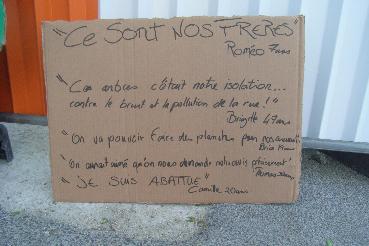 "CE SONT NOS FRERES"
Roméo 7 ans
"Ces arbres c'était notre isolation...
contre le bruit et la pollution de la rue!"
Brigitte 47 ans
"On va pouvoir faire des planches pour nos
Brice
"On aurait aimé qu'on nous demande notre avis
Thomas
"JE SUIS ABATTUE"
Camille 20 ans